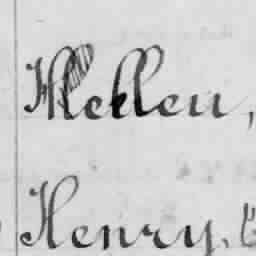 Hellen,
Henry,